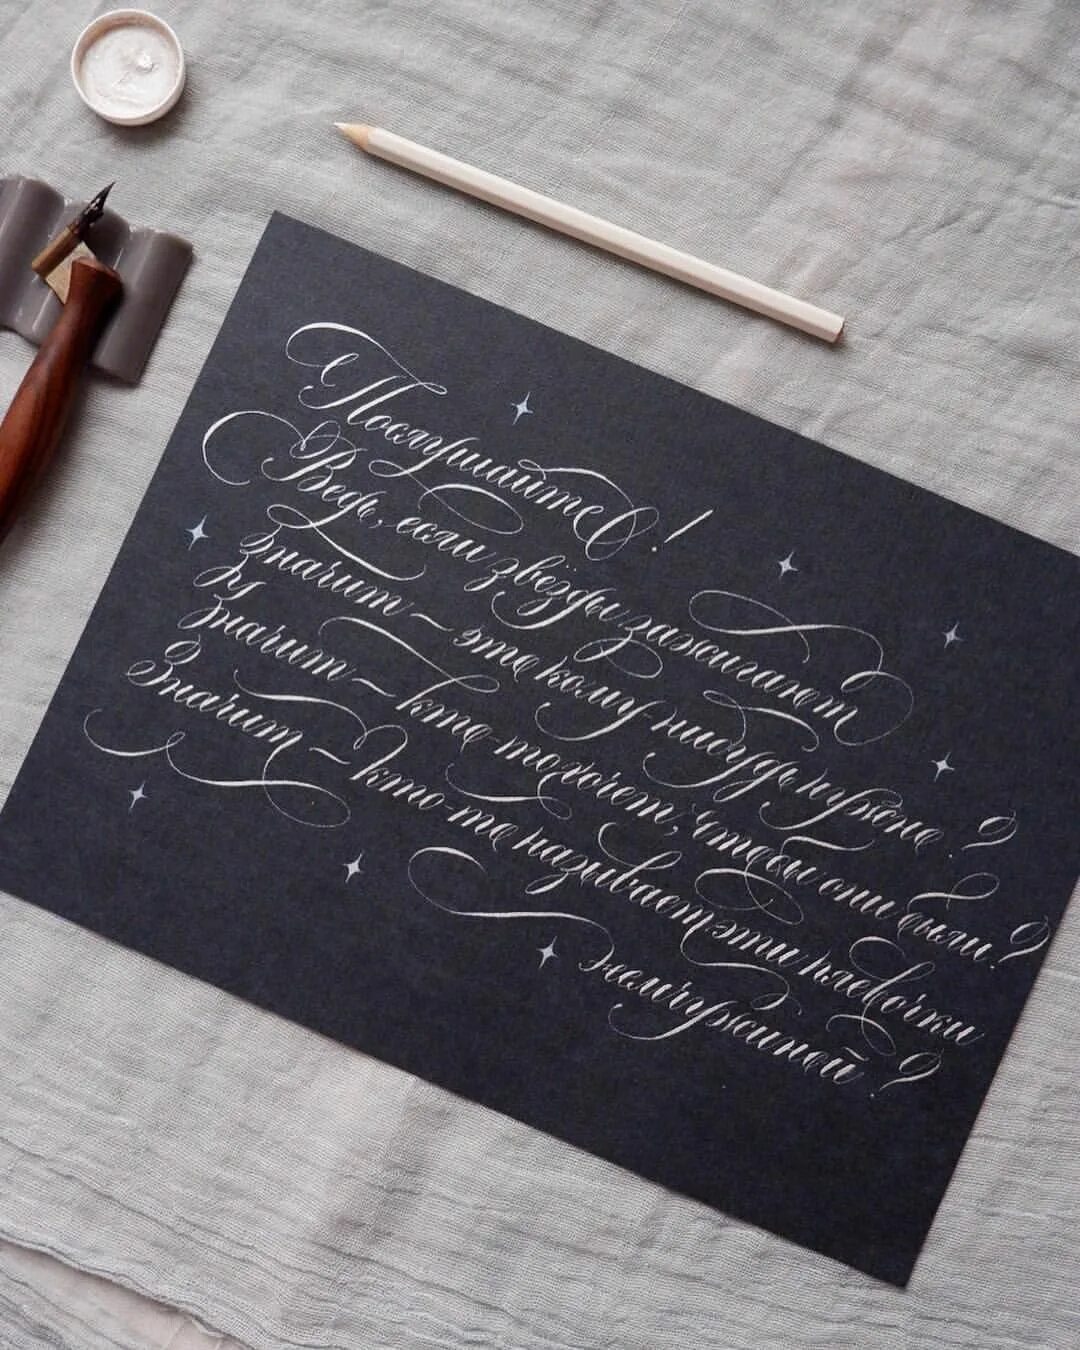 Послушайте!
Ведь, если звёзды зажигают
Значит – это кому-нибудь нужно?
Значит – кто-то хочет, чтобы они были?
Значит – кто-то называет эти плевочки
жемчужиной?